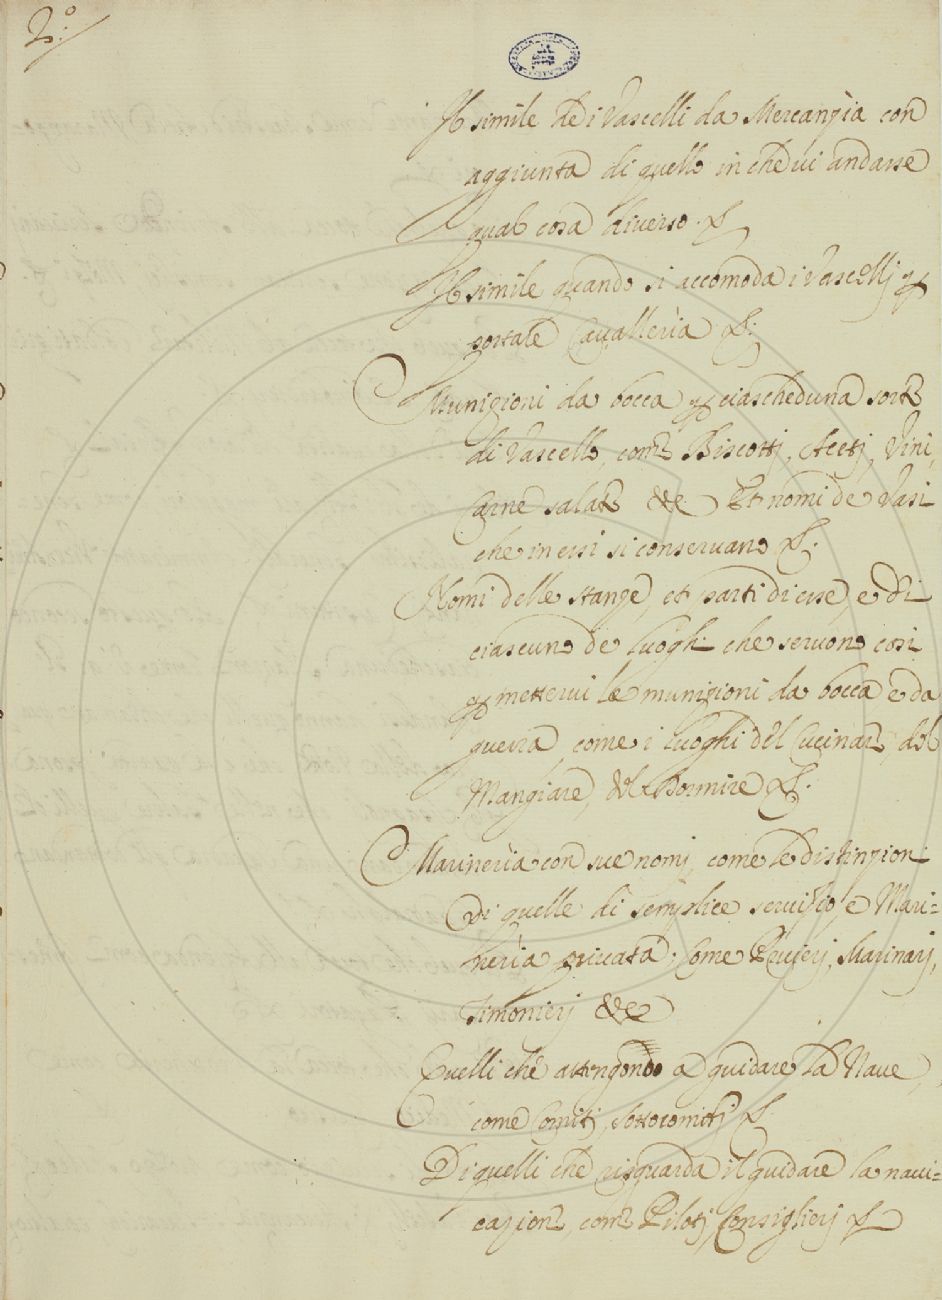 2.º
Il simile de i Vascelli da Mercanzia con
aggiunta di quello in che vi andasse
qual cosa diverso. &.
Il simile quando si accomoda i Vascellj p
portare Cavalleria &.
Munizioni da bocca p ciascheduna sorte
di Vascello, come Biscottj, Acetj, Vini,
Carne salate &c. Et nomi de Vasi
che in essi si conservano &.
Nomi delle stanze, et parti di esse, e di
ciascuno de luoghi che servono così
p mettervi le munizioni da bocca, e da
guerra, come i luoghi del Cucinare, del
Mangiare, del Dormire &.
Marineria con sue nomj, come le distinzioni
Di quelle di semplice servizio e Mari=
neria privata; Come Marinarj,
Timonierj &c
Quelli che attengono a guidare la Nave,
come Comitj, sottocomitj &.
Di quelli che risguarda il guidare la navi=
cazione, come Pilotj, Consiglierj &